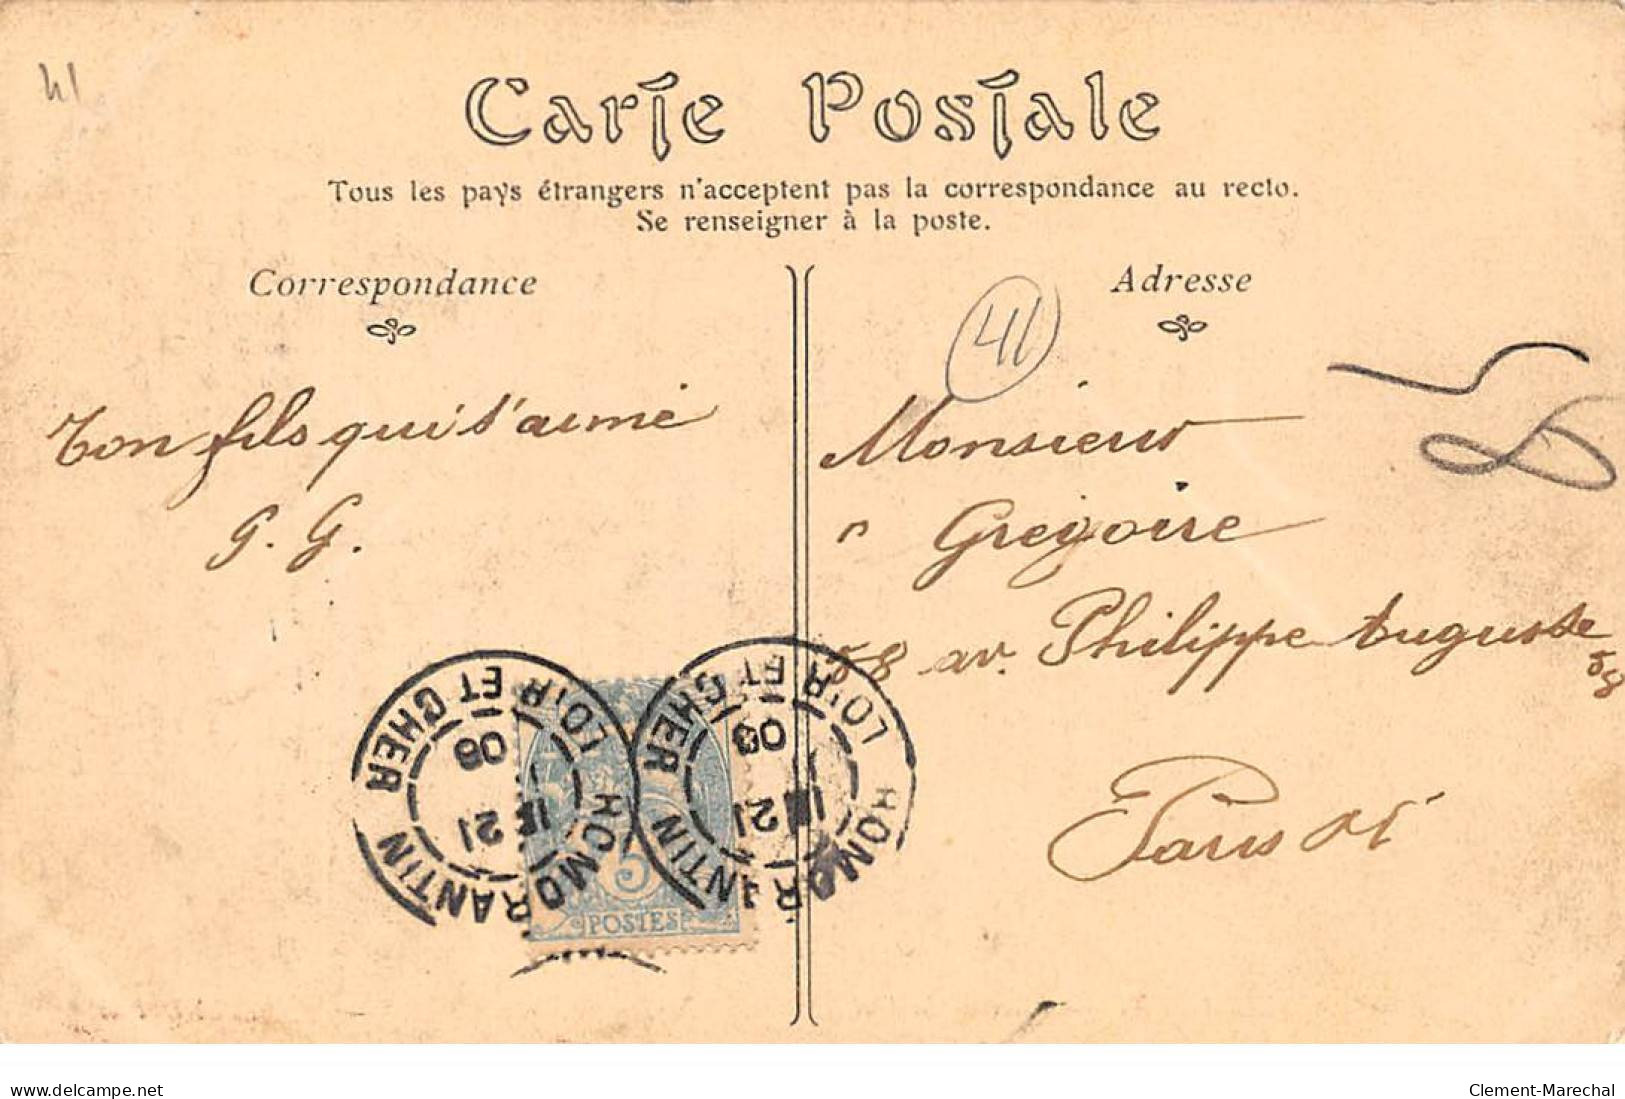 41
Carte Postale
Tous les pays étrangers n'acceptent pas la correspondance au recto.
Se renseigner à la poste.
Correspondance
Ton fils qui t'aime
G. G.
Adresse
41
Monsieur
Gregoire
58 av. Philippe Auguste
58
Paris XI
ROMORANTIN
LOIR ET CHER
21
08
ROMORANTIN
LOIR ET CHER
21
08
5
POSTES
delcampe.net
Clement-Marechal